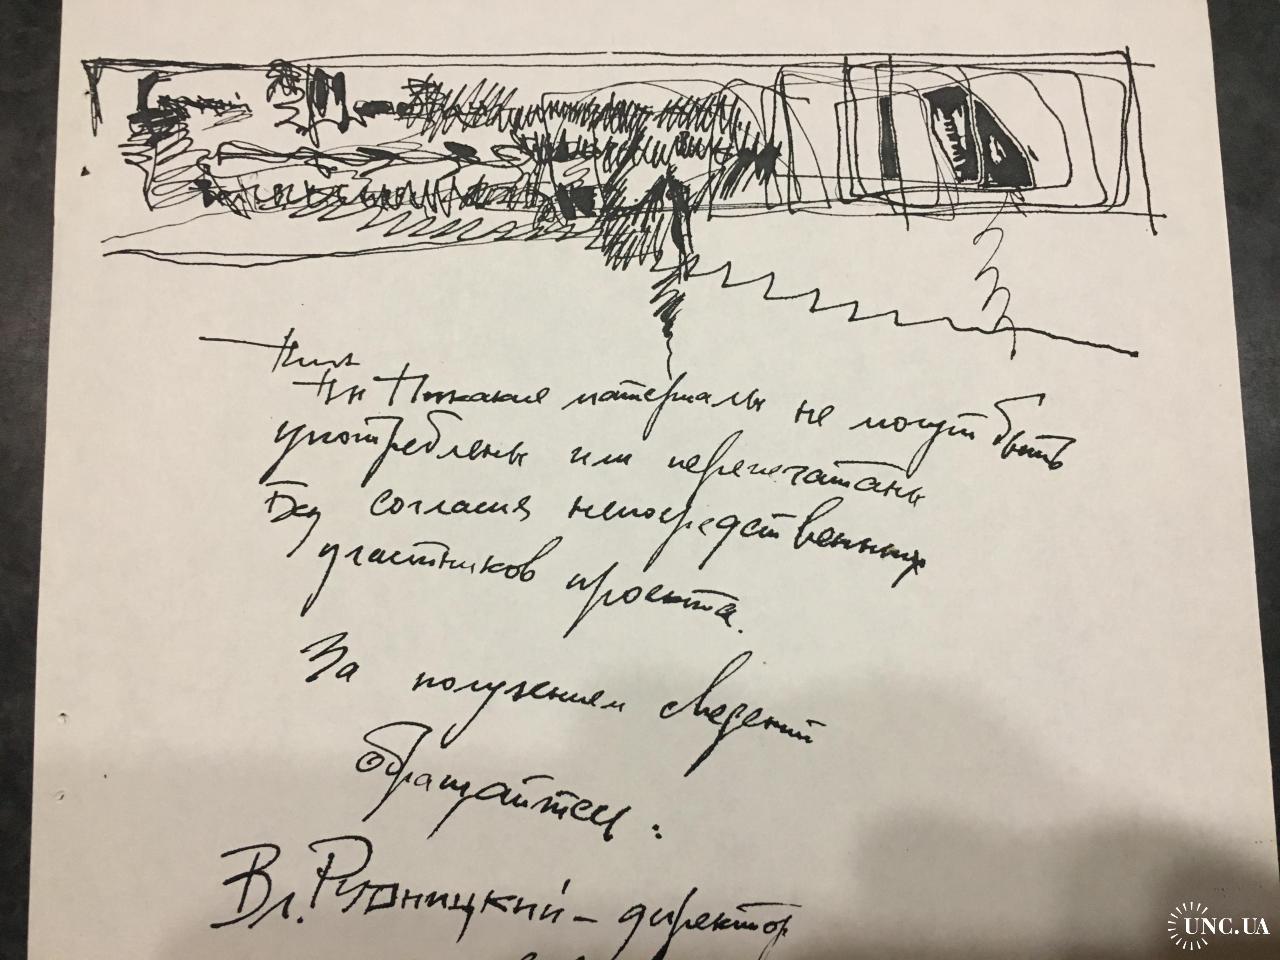 Ник
Ни Никакие материалы не могут быть
употреблены или перепечатаны
Без согласия непосредственных
участников проекта.
За получением сведений
обращайтесь:
Вл. Рудницкий – директор
UNC.UA